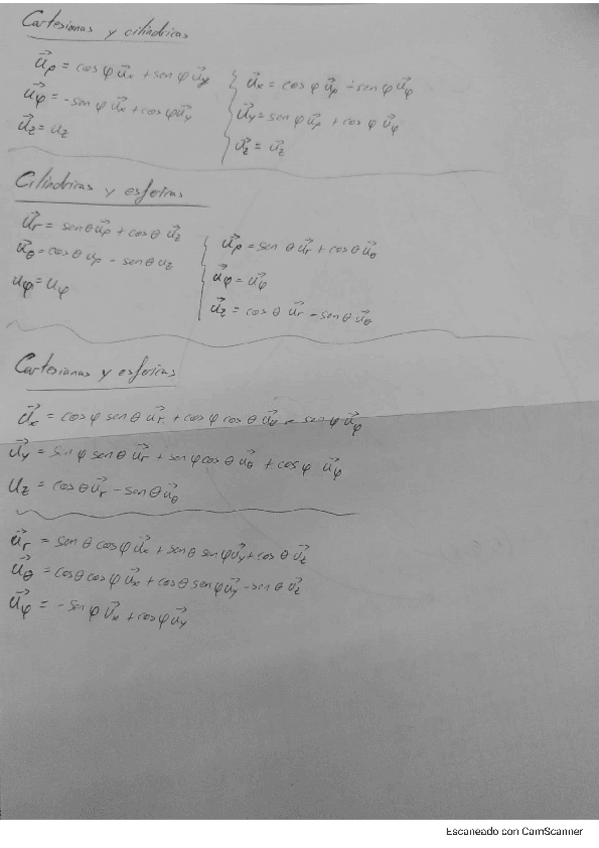 Cartesianas y cilíndricas
u⃗ρ = cos φ u⃗x + sen φ u⃗y
u⃗φ = -sen φ u⃗x + cos φ u⃗y
u⃗z = uz
u⃗x = cos φ u⃗ρ - sen φ u⃗φ
u⃗y = sen φ u⃗ρ + cos φ u⃗φ
u⃗z = u⃗z
Cilíndricas y esféricas
u⃗r = sen θ u⃗ρ + cos θ u⃗z
u⃗θ = cos θ uρ - sen θ uz
uφ = uφ
u⃗ρ = sen θ u⃗r + cos θ u⃗θ
u⃗φ = u⃗φ
u⃗z = cos θ u⃗r - sen θ u⃗θ
Cartesianas y esféricas
u⃗x = cos φ sen θ u⃗r + cos φ cos θ - sen φ u⃗φ
u⃗y = sen φ sen θ u⃗r + sen φ cos θ u⃗θ + cos φ u⃗φ
uz = cos θ u⃗r - sen θ u⃗θ
u⃗r = sen θ cos φ u⃗x + sen θ sen φ u⃗y + cos θ u⃗z
u⃗θ = cos θ cos φ u⃗x + cos θ sen φ u⃗y - sen θ u⃗z
u⃗φ = -sen φ u⃗x + cos φ u⃗y
Escaneado con CamScanner